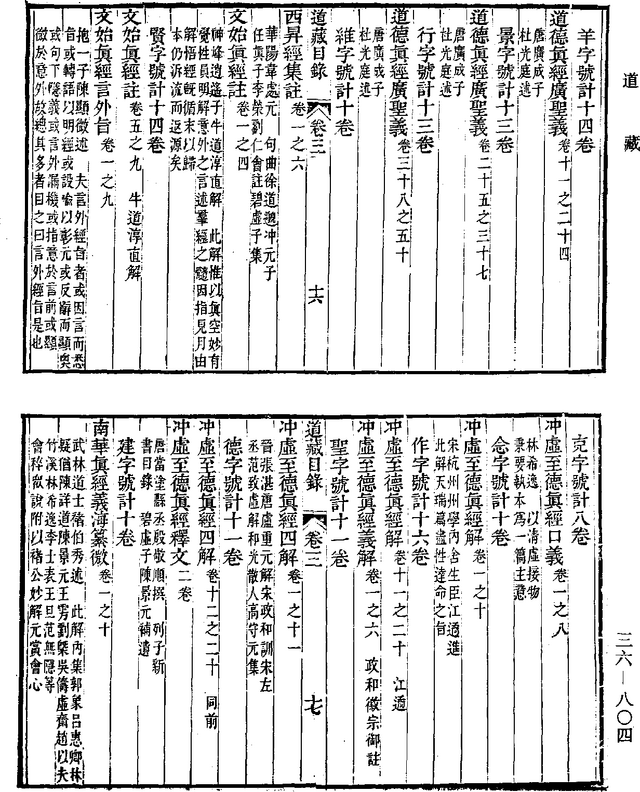 道藏
羊字號計十四卷
道德眞經廣聖義 卷十一之二十四
唐廣成子
杜光庭述
景字號計十三卷
道德眞經廣聖義 卷二十五之三十七
唐廣成子
杜光庭述
行字號計十三卷
道德眞經廣聖義 卷三十八之五十
唐廣成子
杜光庭述
維字號計十卷
道藏目錄 卷三 十六
西昇經集註 卷一之六
華陽韋處元 句曲徐道邈冲元子
任眞子李榮劉仁會註碧虛子集
文始眞經註 卷一之四
神峰逍遙子牛道淳直解 此解惟以眞空妙有
賢性員明解意外之言述羣經之譬因指見月由
解悟經旣循末以歸
本仍泝流而返源矣
賢字號計十四卷
文始眞經註 卷五之九 牛道淳直解
文始眞經言外旨 卷一之九
抱一子陳顯微述 夫言外經旨者或因言而悉
旨或轉譯以明經或設喻以彰元或反辭而顯奥
或句下隱義或言外漏機或指意於言前或顯
微於意外故總其多者目之曰言外經旨是也
克字號計八卷
冲虛至德眞經口義 卷一之八
林希逸 以清虛接物
秉要執本爲一篇主意
念字號計十卷
冲虛至德眞經解 卷一之十
宋杭州州學內舍生臣江遹進
此解天瑞篇盡性達命之旨
作字號計十六卷
冲虛至德眞經解 卷十一之二十 江遹
冲虛至德眞經義解 卷一之六 政和徽宗御註
聖字號計十一卷
道藏目錄 卷三 十七
冲虛至德眞經四解 卷一之十一
晉張湛唐盧重元解宋政和訓宋左
丞范致虛解和光散人高守元集
德字號計十一卷
冲虛至德眞經四解 卷十二之二十 同前
冲虛至德眞經釋文 二卷
唐當塗縣丞殷敬順撰 列子新
書目錄 碧虛子陳景元補遺
建字號計十卷
南華眞經義海纂微 卷一之十
武林道士褚伯秀述 此解內集郭象呂惠卿林
疑獨陳詳道陳景元王雱劉槩吳儔虛齋趙以夫
竹溪林希逸李士表王旦范無隱等
會稡衆說附以褚公妙解元賞會心
三六—八〇四